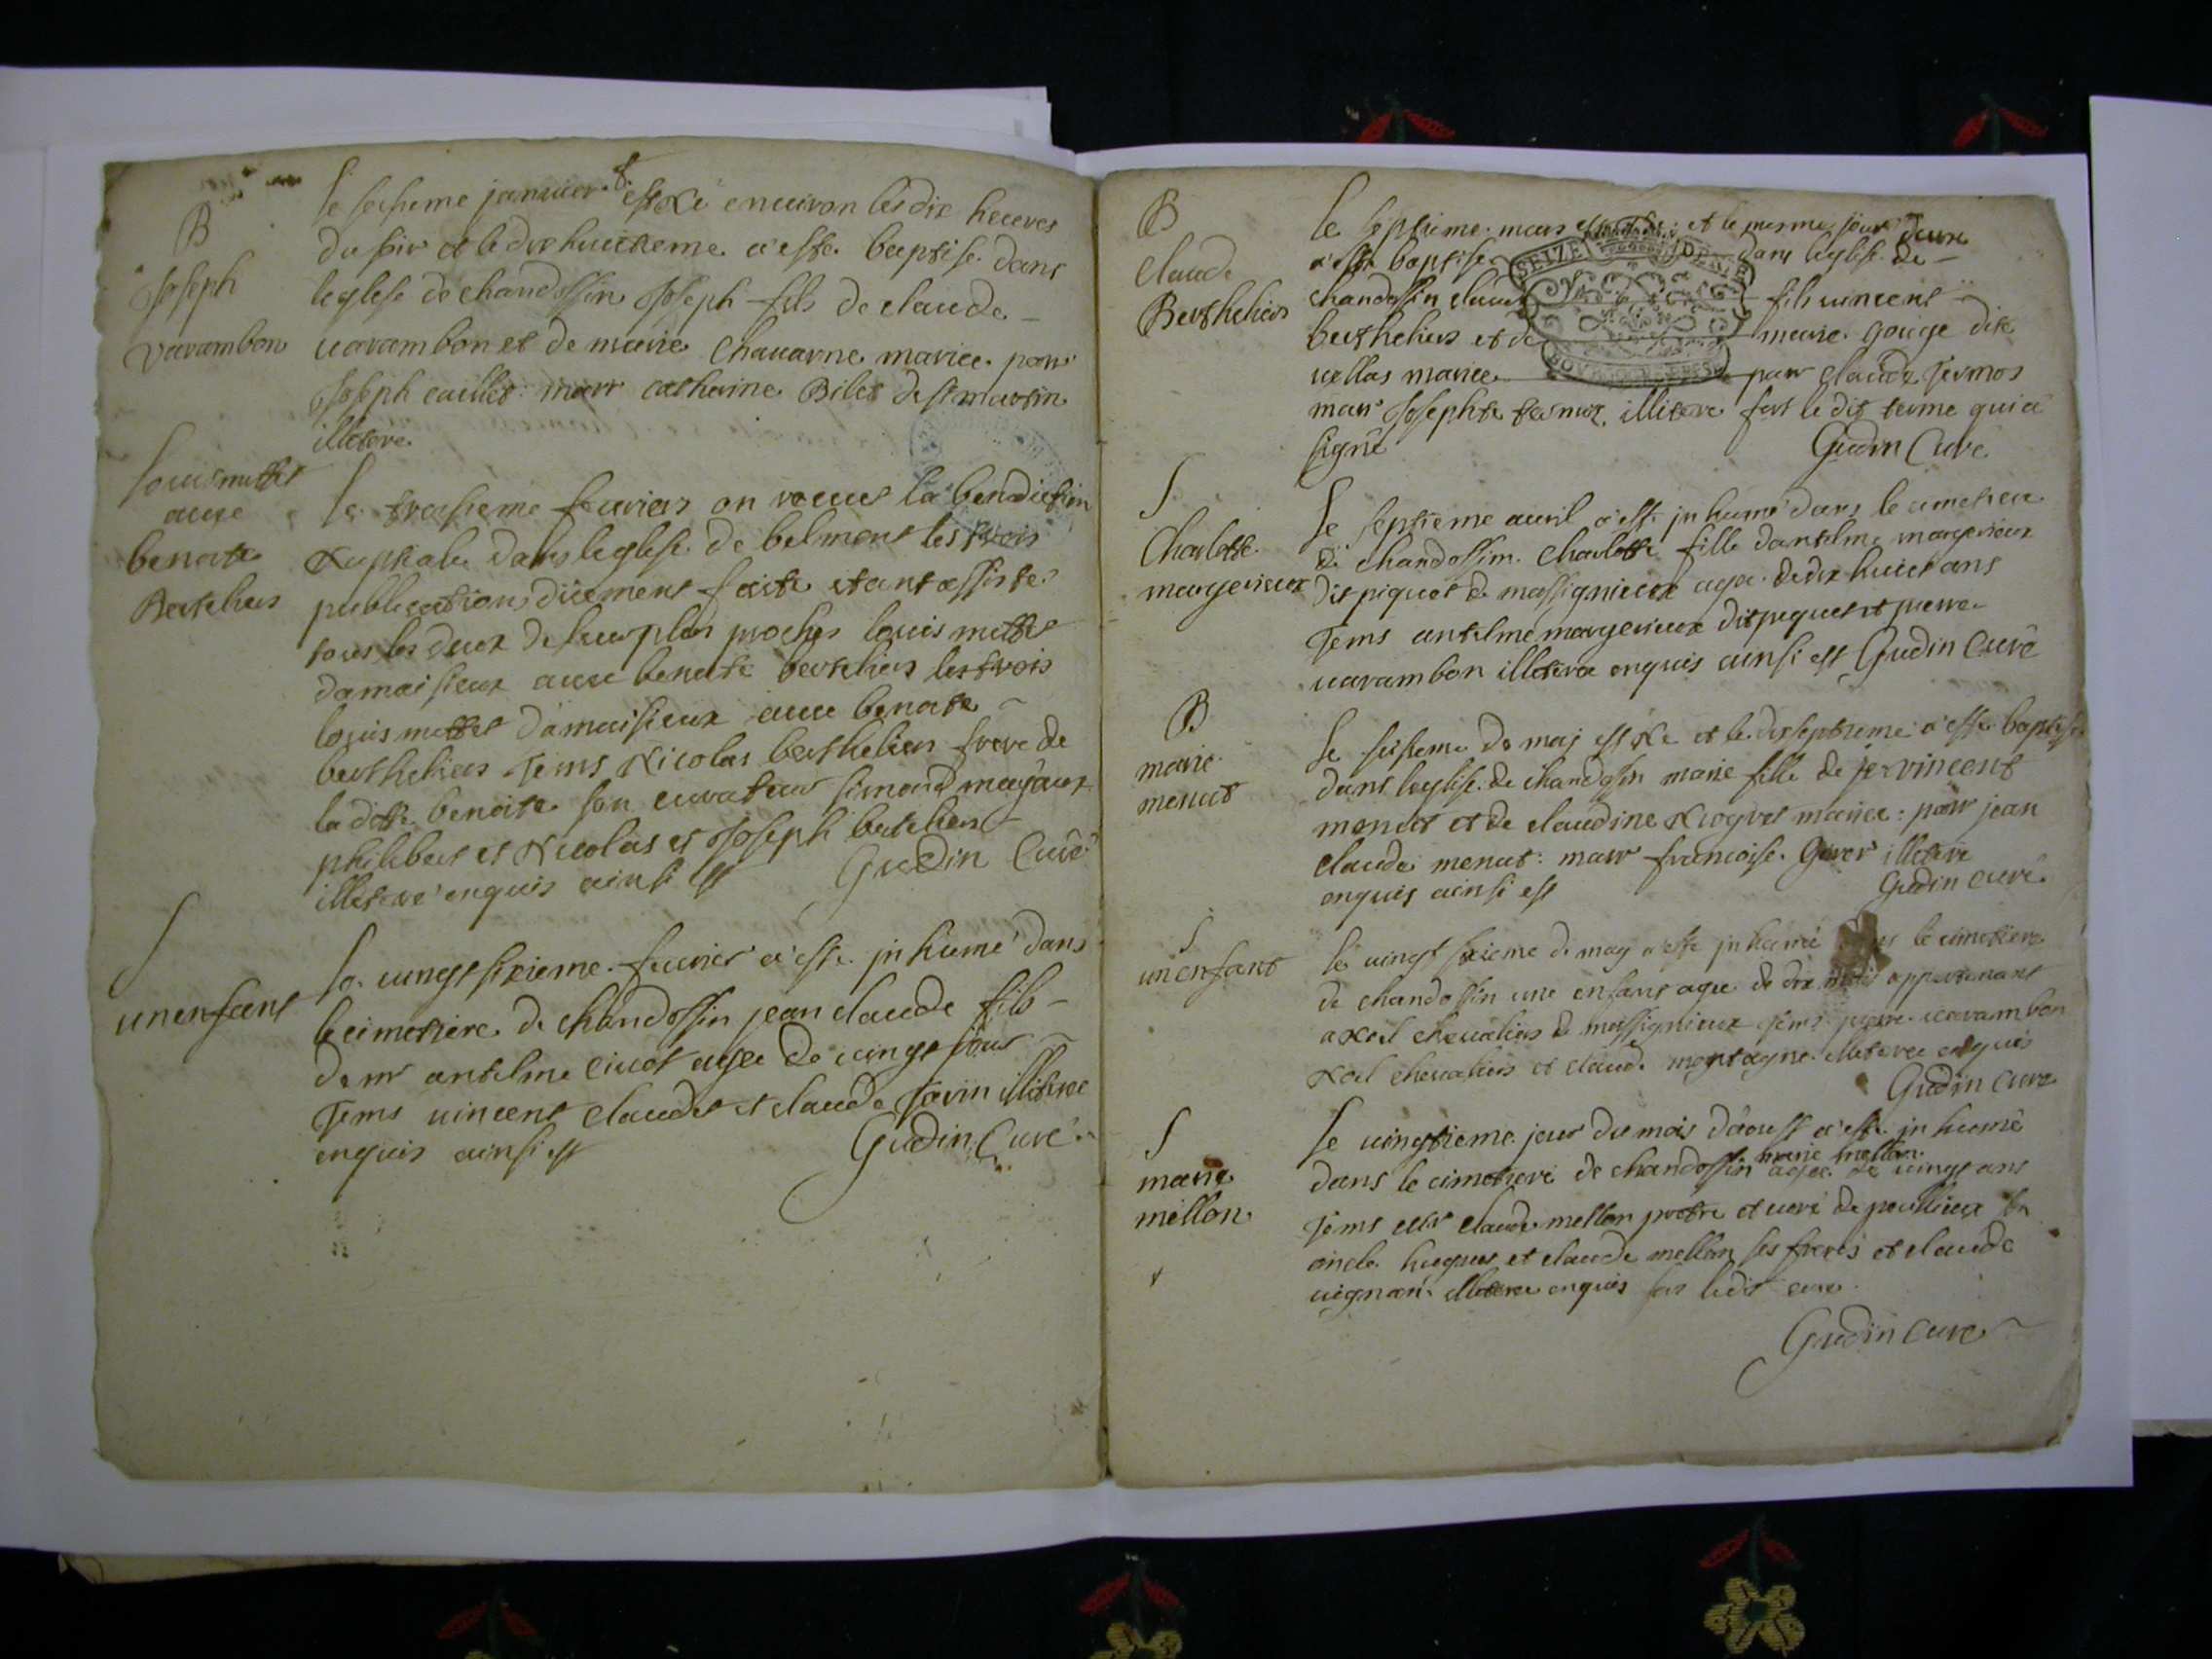 B
Joseph
varambon
le sesieme januier est Né enuiron les dix heures
du soir et le dix huictieme a esté baptisé dans
leglise de chandossin Joseph fils de claude
uarambon et de marie chauarne mariee parr
Joseph caillet marr catherine Bilet de st martin
illeterе
Louis mettet
auec
benoite
Berteliers
le troisieme feuriers on receut la benediction
Nuptiale dans leglise de belmont les trois
publications diiement faite etant assisté
tous les deux de leur plus proches louis mettet
damaisieux auec benoite berteliers les trois
louis mettet damaisieux auec benoite
bertheliers Tems Nicolas bertheliers frere de
la ditte benoite son curateur simond
philibert et Nicolas et Joseph berteliers
illeteré enquis ainsi est Gudin Curé
S
un enfant
le uingt sixieme feurier a esté inhumé dans
le cimetiere de chandossin jean claude fils
de mr antelme ciuet agée de uingt jour
Tems uincent claudet et claude Savin illiteree
enquis ainsi est Gudin Curé
B
claude
Bertheliers
le septieme mars est et le mesme jour
a esté baptisé dans leglise de
chandossin claude fils uincent
bertheliers et de marie gouge dite
uellas mariee parr claude Termos
marr Josephte illitere fors le dit terme qui a
signé Gudin Curé
S
Charlotte
margerieux
le septieme auril a esté inhumé dans le cimetiere
de chandossim Charlotte fille dantelme margerieux
dit piquet de massignieux agée de dix huict ans
Tems antelme margerieux dit piquet et pierre
uarambon illeteree enquis ainsi est Gudin Curé
B
marie
menut
le sesieme de maj est Né et le dix septieme a esté baptisé
dans leglise de chandossin marie fille de vincent
menut et de claudine mariee parr jean
claude menut marr francoise illetere
enquis ainsi est Gudin curé
S
un enfant
le uingt sixieme de may a esté inhumé le cimetiere
de chandossin une enfant agée de dix mois appartenant
a Noel cheualiers de massignieux Tems pierre uarambon
Noel cheualiers et claude montagne illeteree enquis
Gudin Curé
S
marie
mellon
le uingtieme jour du mois d'aoust a esté inhumé
marie mellon
dans le cimetiere de chandossin agée de uingt ans
Tems claude mellon pretre et curé de poullieux
oncle hugues et claude mellon ses freres et claude
illeteree enquis fors ledit curé
Gudin Curé